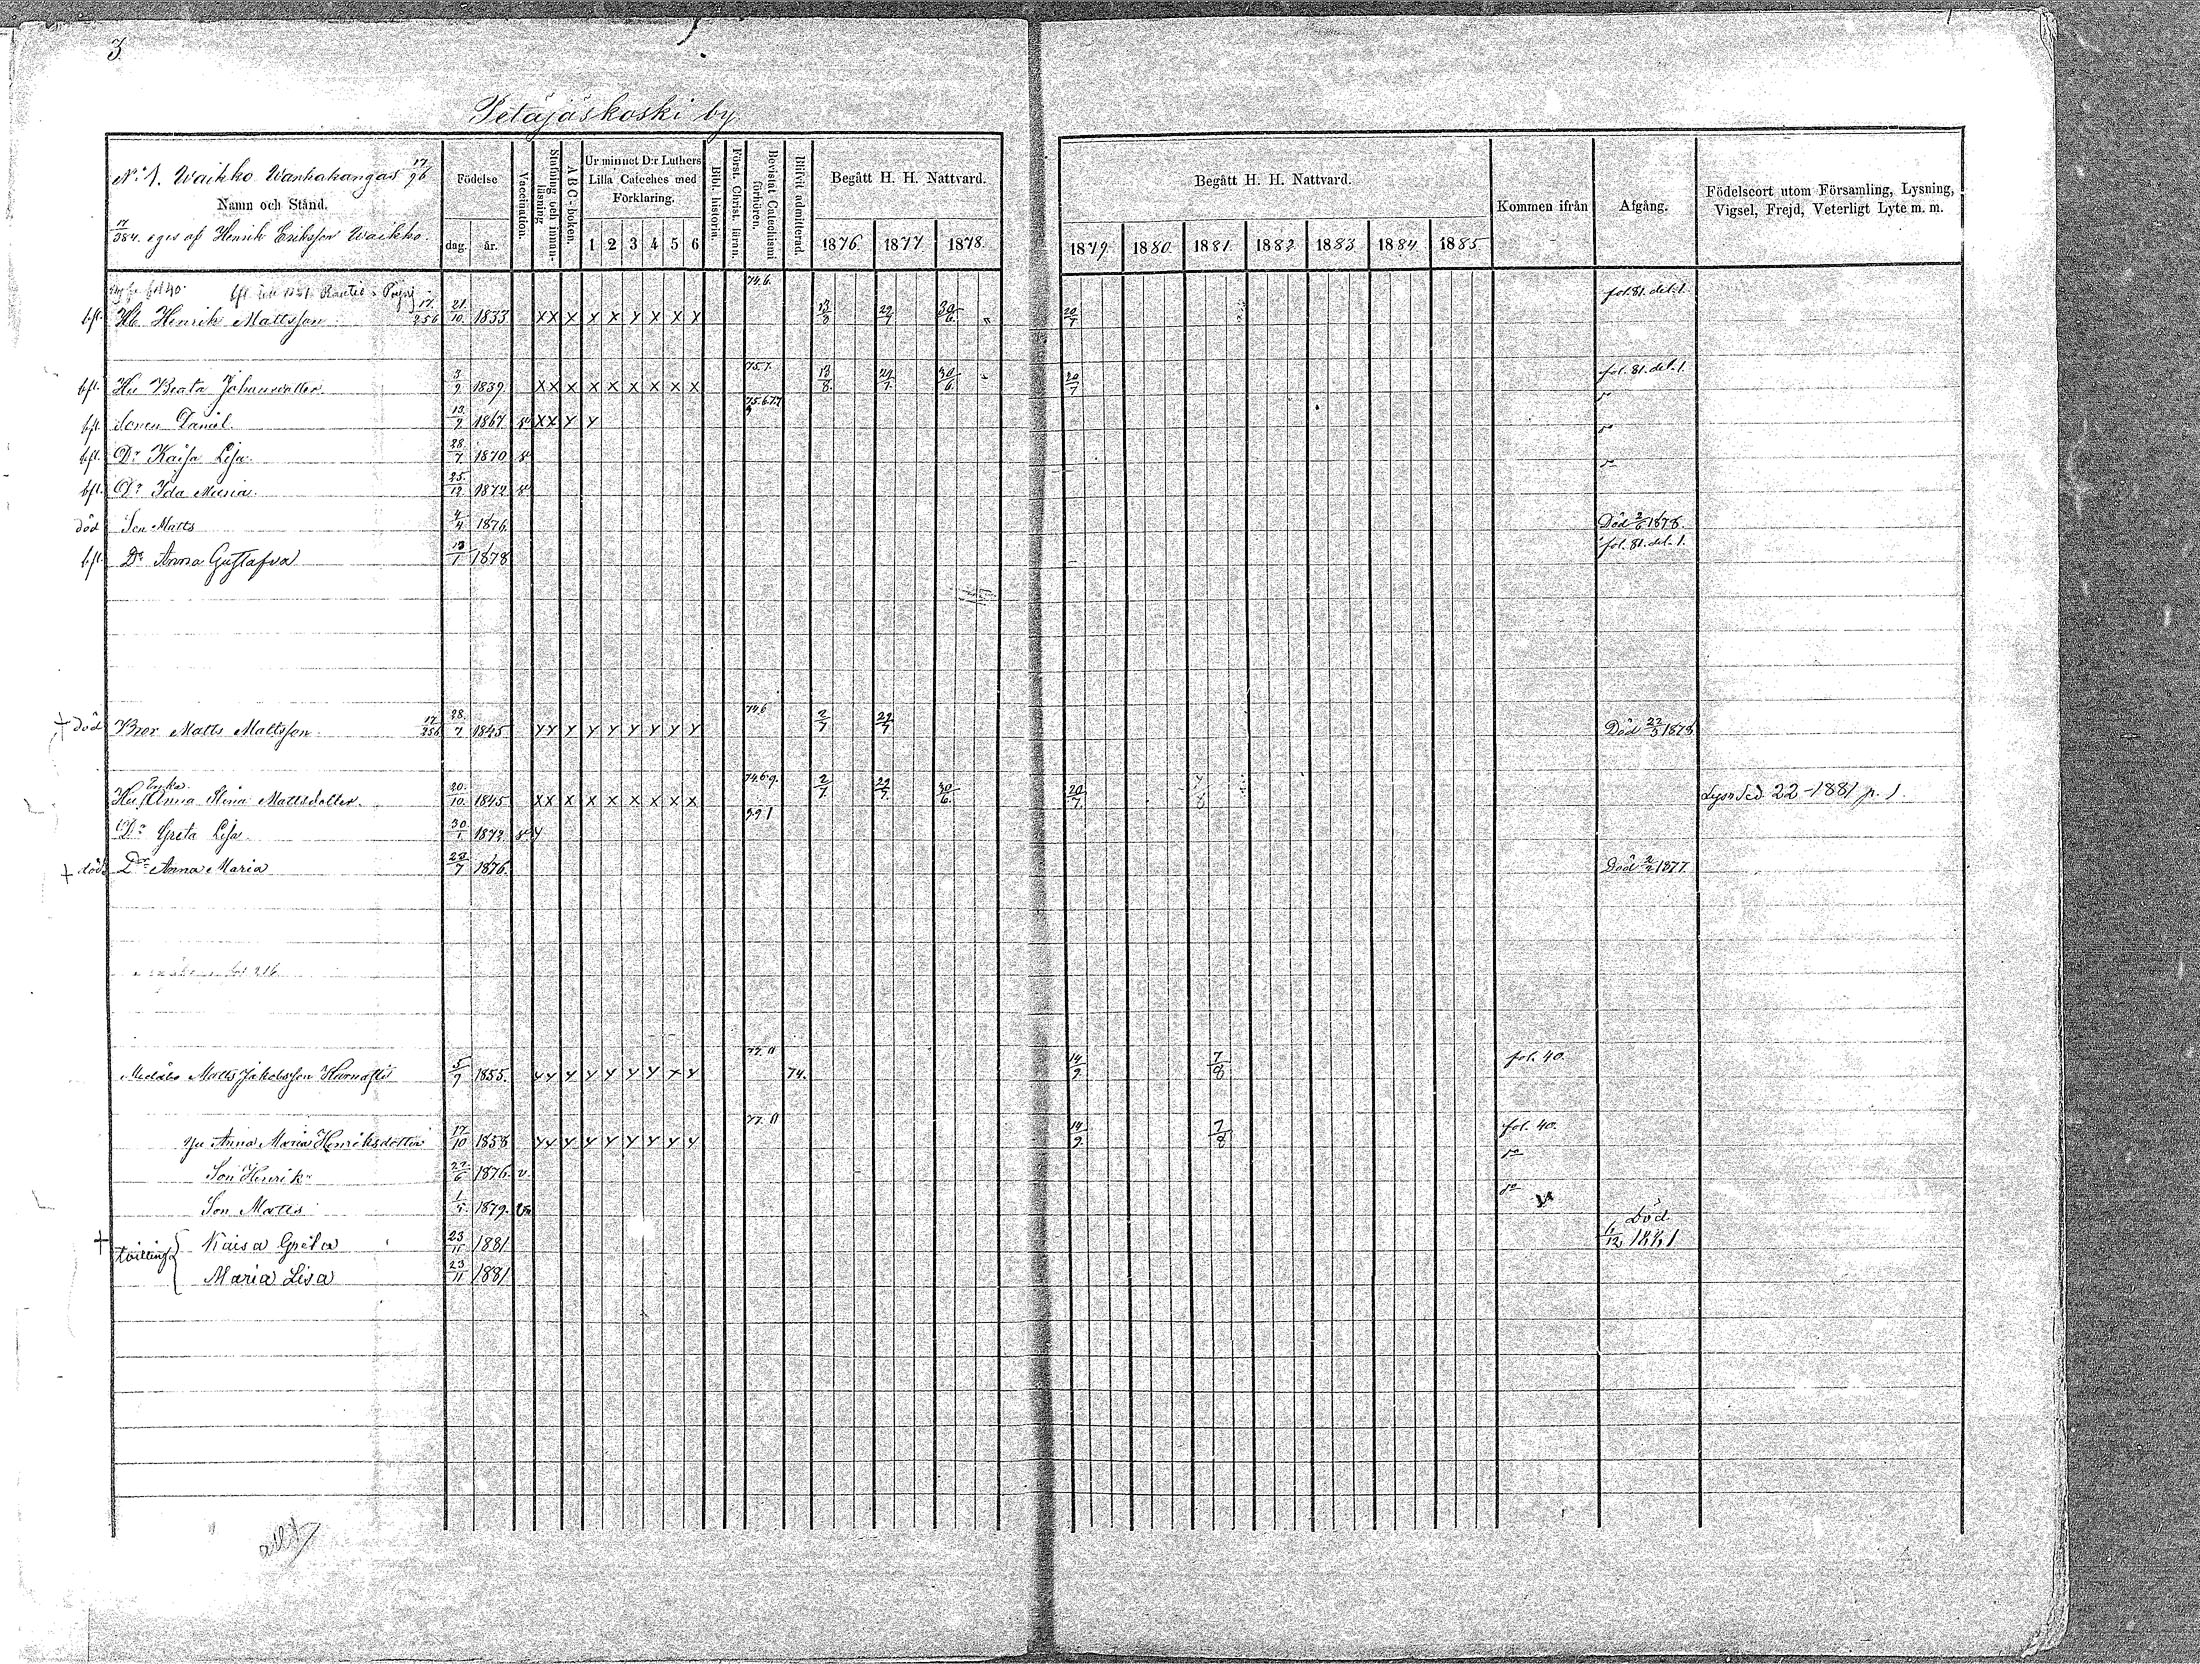 3.
Petäjäskoski by
No 1. Waikko Wanhakangas 17/96
Namn och Stånd.
17/384. eges af Henrik Eriksson Waikko.
Födelse
dag. år.
Vaccination.
Stafning och innan-läsning
A B C-boken.
Ur minnet D:r Luthers Lilla Cateches med Förklaring.
1 2 3 4 5 6
Bibl. historia.
Först. Christ. läran.
Bevistat Catechismi förhören.
Blifvit admitterad.
Begått H. H. Nattvard.
1876. 1877 1878.
Begått H. H. Nattvard.
1879. 1880. 1881. 1882 1883 1884. 1885
Kommen ifrån
Afgång.
Födelseort utom Församling, Lysning, Vigsel, Frejd, Veterligt Lyte m. m.
fol 40. 74.6. fol. 81. del. 1.
bft. Hb. Henrik Mattsson 17/256 21/10 1833 X X X X X X X X X 13/8 22/7 30/6. 20/7
bft. Hu Beata Johansdotter. 3/9 1839 X X X X X X X X X 75.7. 13/8. 22/7. 30/6. 20/7 fol. 81. del. 1.
bft. Sonen Daniel. 13/9 1867 X X Y Y 75.6.77 do
bft. Dr Kaisa Lisa. 28/7 1870 do
bft. Dr Ida Maria. 25/12 1872 do
död Son Matts 4/4 1876. Död 2/6 1878.
bft. Dr Anna Gustafva 13/1 1878 fol. 81. del. 1.
+ död Bror Matts Mattsson 17/256 28/7 1845 Y Y Y Y Y Y Y Y Y 74.6 2/7 22/7 Död 22/3 1878
Enka
Hu Anna Stina Mattsdotter. 20/10. 1845. X X X X X X X X X 74.6.9. 2/7. 22/7. 30/6. 20/7. 7/8 Lysn Sed. 22-1881 p. 1.
Dr Greta Lisa 30/1 1872 Y
+ död Dr Anna Maria 22/7 1876. Död 2/2 1877.
fol 216
Medåbo Matts Jakobsson 5/9 1855. Y Y Y Y Y Y Y X Y 77. 74. 14/9. 7/8 fol. 40.
Hu Anna Maria Henriksdotter 17/10 1858 Y Y Y Y Y Y Y Y Y 77. 14/9. 7/8 fol. 40.
Son Henrik 27/6 1876. v. do
Son Matts 1/5 1879. do
+ tvilling { Kaisa Greta 23/11 1881 Död 11/12 1881
Maria Lisa 23/11 1881